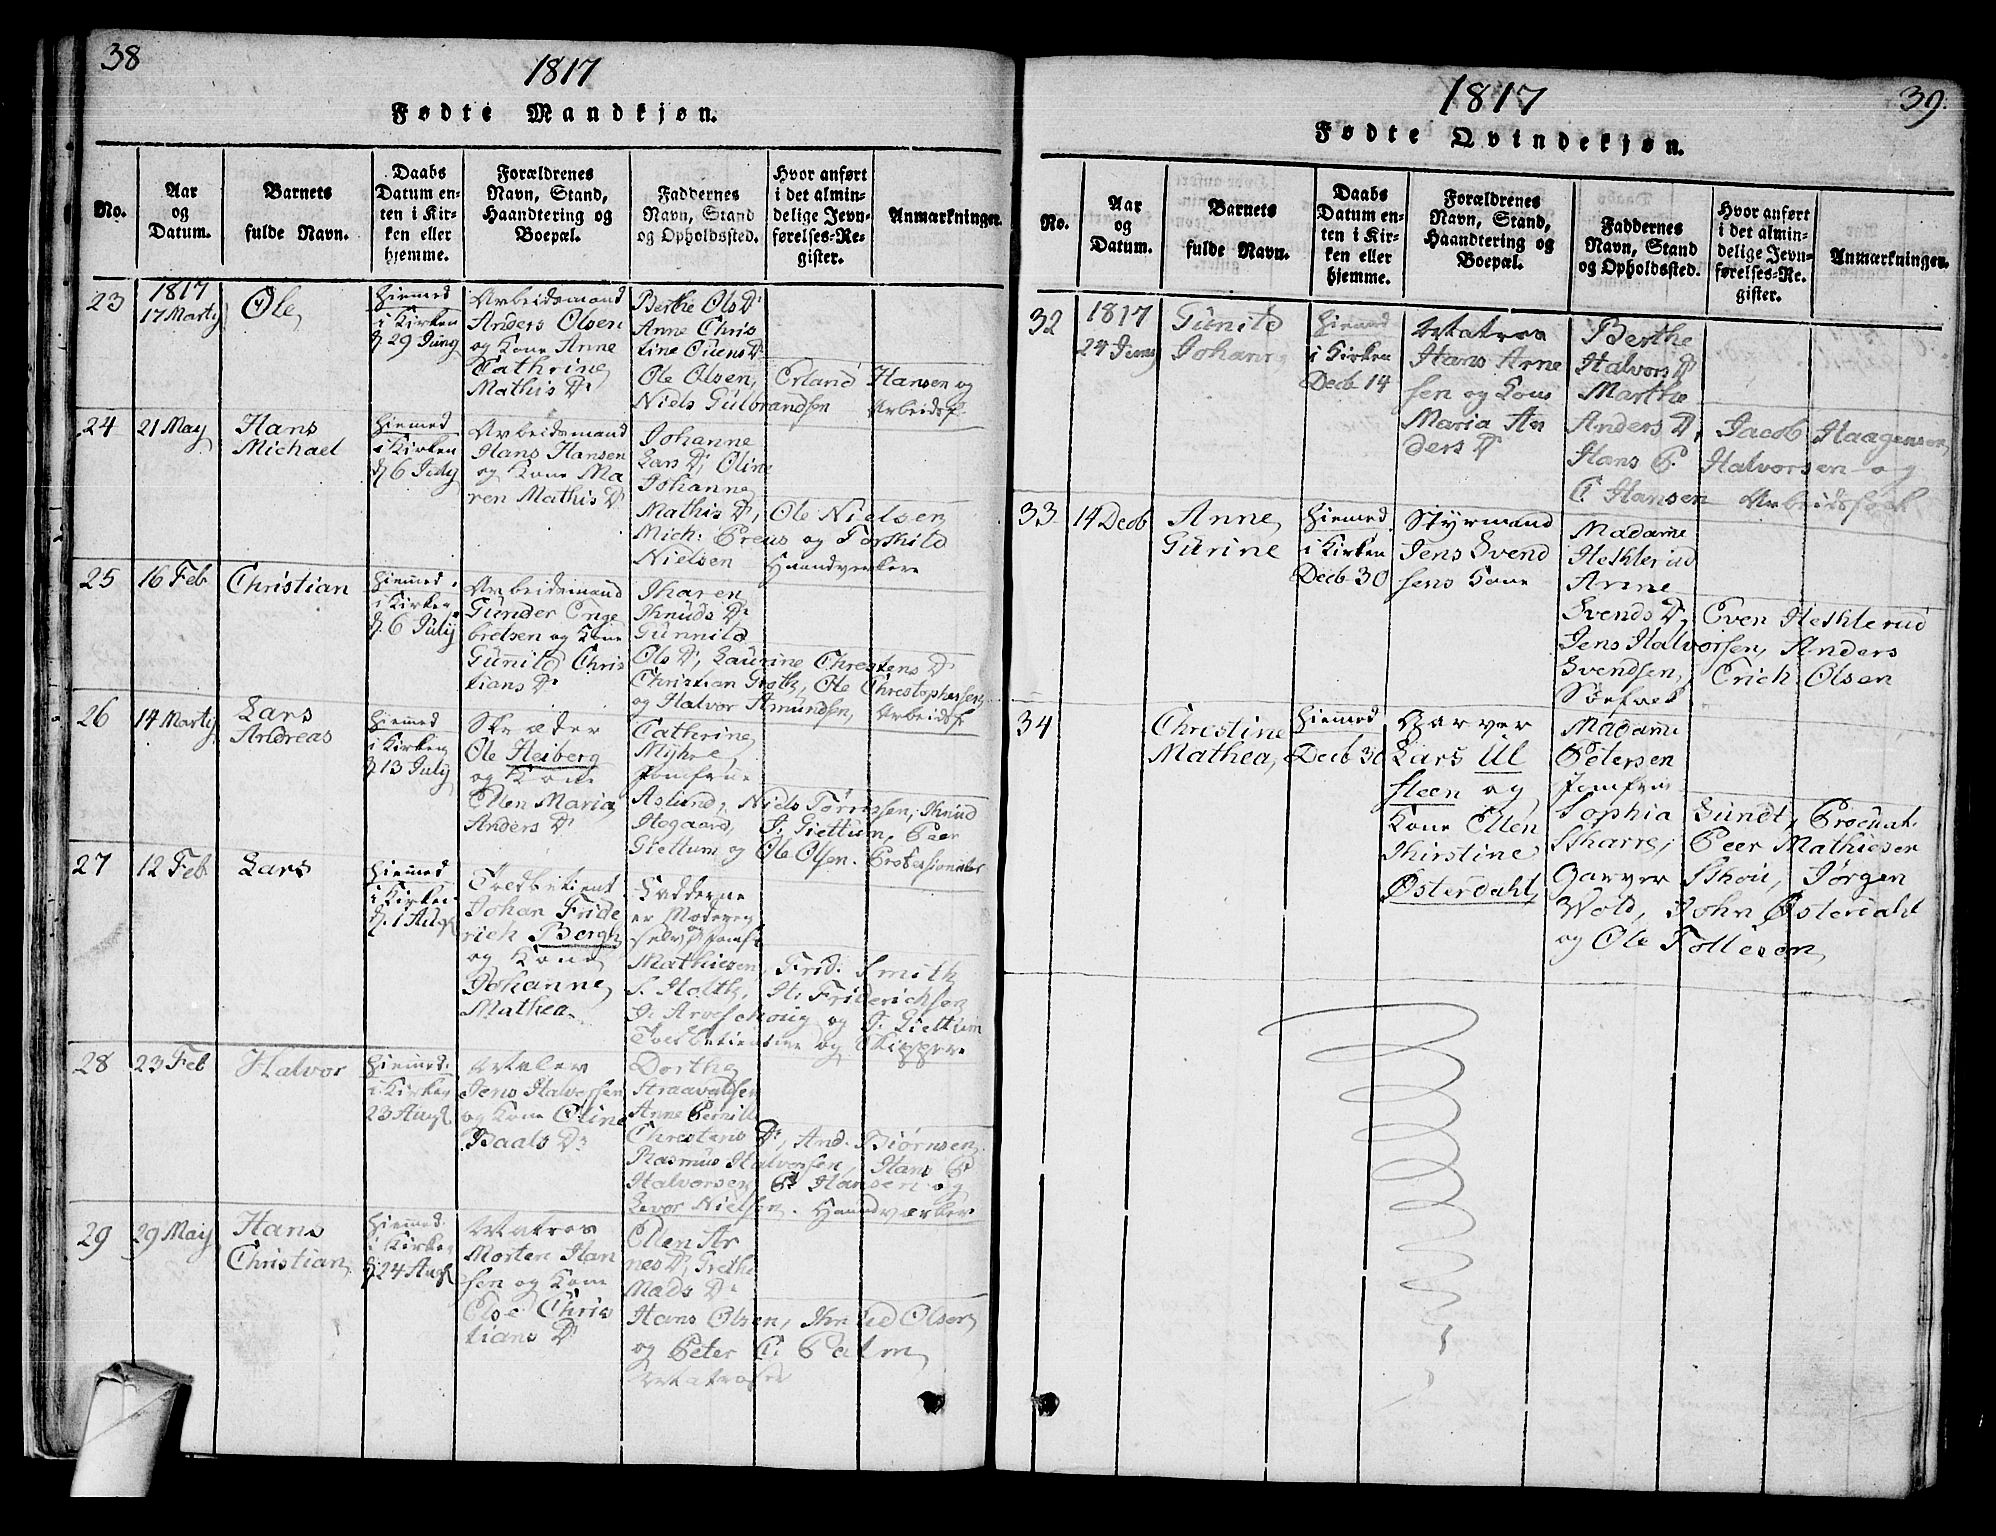 38
1817
Fødte Mandkjøn.
No.
Aar
og
Datum.
Barnets
fulde Navn.
Daabs
Datum en-
ten i Kir-
ken eller
hjemme.
Forældrenes
Navn, Stand,
Haandtering og
Boepæl.
Faddernes
Navn, Stand
og Opholdssted.
Hvor anført
i det almin-
delige Jevn-
førelses-Re-
gister.
Anmærkninger.
23
1817
17 Marty
Ole
Hiemed
i Kirken
d. 29 Juny
Arbeidsmand
Anders Olsen
og Kone Anne
Cathrine
Mathis Dr
Berthe Ols Dr
Anne Chris
tine Ouens Dr
Ole Olsen, Erland Hansen og
Niels Gulbrandsen Arbeidsf.
24
21 May
Hans
Michael
Hiemed
i Kirken
d. 6 July
Arbeidsmand
Hans Hansen
og Kone Ma
ren Mathis Dr
Johanne
Lars Dr, Oline
Johanne
Mathis Dr, Ole Nielsen
Mich: Preus og Torkild
Nielsen Haandverkere
25
16 Feb
Christian
Hiemed
i Kirken
d. 6 July
Arbeidsmand
Gunder Enge
bretsen og Kone
Gunild Chris
tians Dr
Karen
Knuds Dr
Gunnild
Ols Dr, Laurine Chrestens Dr
Christian Groth, Ole Chrestophersen
og Halvor Amundsen, Arbeidsf.
26
14 Marty
Lars
Andreas
Hiemed
i Kirken
d. 13 July
Skræder
Ole Heiberg
og Kone
Ellen Maria
Anders Dr
Cathrine
Myhre
Jomfrue
Aslund, Niels Tørrissen, Knud
Hogaard, J. Giettum, Peer
Giettum og Ole Olsen.
27
12 Feb
Lars
Hiemed
i Kirken
d. 1 Augt
Toldbetient
Johan Fride
rich Bergh
og Kone
Johanne
Mathea
Fadderne
er Moderen
selv og Jomf.
Mathiesen, Frid. Smith
S. Holth, H. Friderichsen
J. Arveschoug og J. Giettum
Toldbetientere og Skippere
28
23 Feb
Halvor
Hiemed
i Kirken
23 Augt
Maler
Jens Halvorsen
og Kone Oline
Paals Dr
Dorthe
Straavaldsen
Anne Pernill
Chrestens Dr, And. Biørnsen
Rasmus Halvorsen, Hans P.
Halvorsen, P. Hansen og
Levor Nielsen. Haandværker
29
29 May
Hans
Christian
Hiemed
i Kirken
d. 24 Augt
Matros
Morten Han
sen og Kone
Else Chris
tians Dr
Ellen Ar
nes Dr, Grethe
Mads Dr
Hans Olsen, Knud Olsen
og Peter C. Palm
Matroser
1817
39
Fødte Qvindekjøn.
No.
Aar
og
Datum.
Barnets
fulde Navn.
Daabs
Datum en-
ten i Kir-
ken eller
hjemme.
Forældrenes
Navn, Stand,
Haandtering og
Boepæl.
Faddernes
Navn, Stand
og Opholdssted.
Hvor anført
i det almin-
delige Jevn-
førelses-Re-
gister.
Anmærkninger.
32
1817
24 Juny
Gunild
Johanne
Hiemed
i Kirken
Decb 14
Matros
Hans Arne
sen og Kone
Maria An
ders Dr
Berthe
Halvors Dr
Marthe
Anders Dr, Jacob Haagensen
Hans P. Halvorsen og
C Hansen Arbeidsfolk
33
14 Decb
Anne
Gurine
Hiemed
i Kirken
Decb 30
Styrmand
Jens Svend
sens Kone
Madame
Hekterud
Anne
Svends Dr, Even Hekterud
Jens Halvorsen, Anders
Svendsen, Erich Olsen
Søefolk
34
Chrestine
Mathea,
Hiemed
Decb 30
Garver
Lars Ul
steen og
Kone Ellen
Kirstine
Østerdahl,
Madame
Petersen
Jomfrue
Sophia Lundt, Procurat.
Skarre, Peer Mathiesen
Garver Skou, Jørgen
Wold, John Østerdahl
og Ole Tollesen